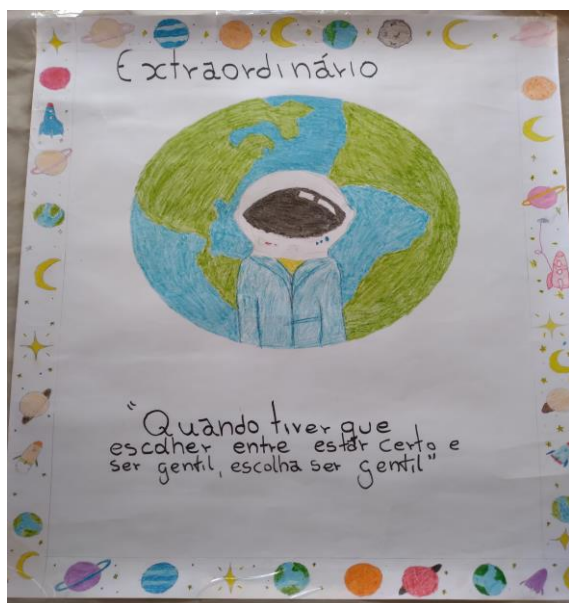 Extraordinário
"Quando tiver que
escolher entre estar certo e
ser gentil, escolha ser gentil"